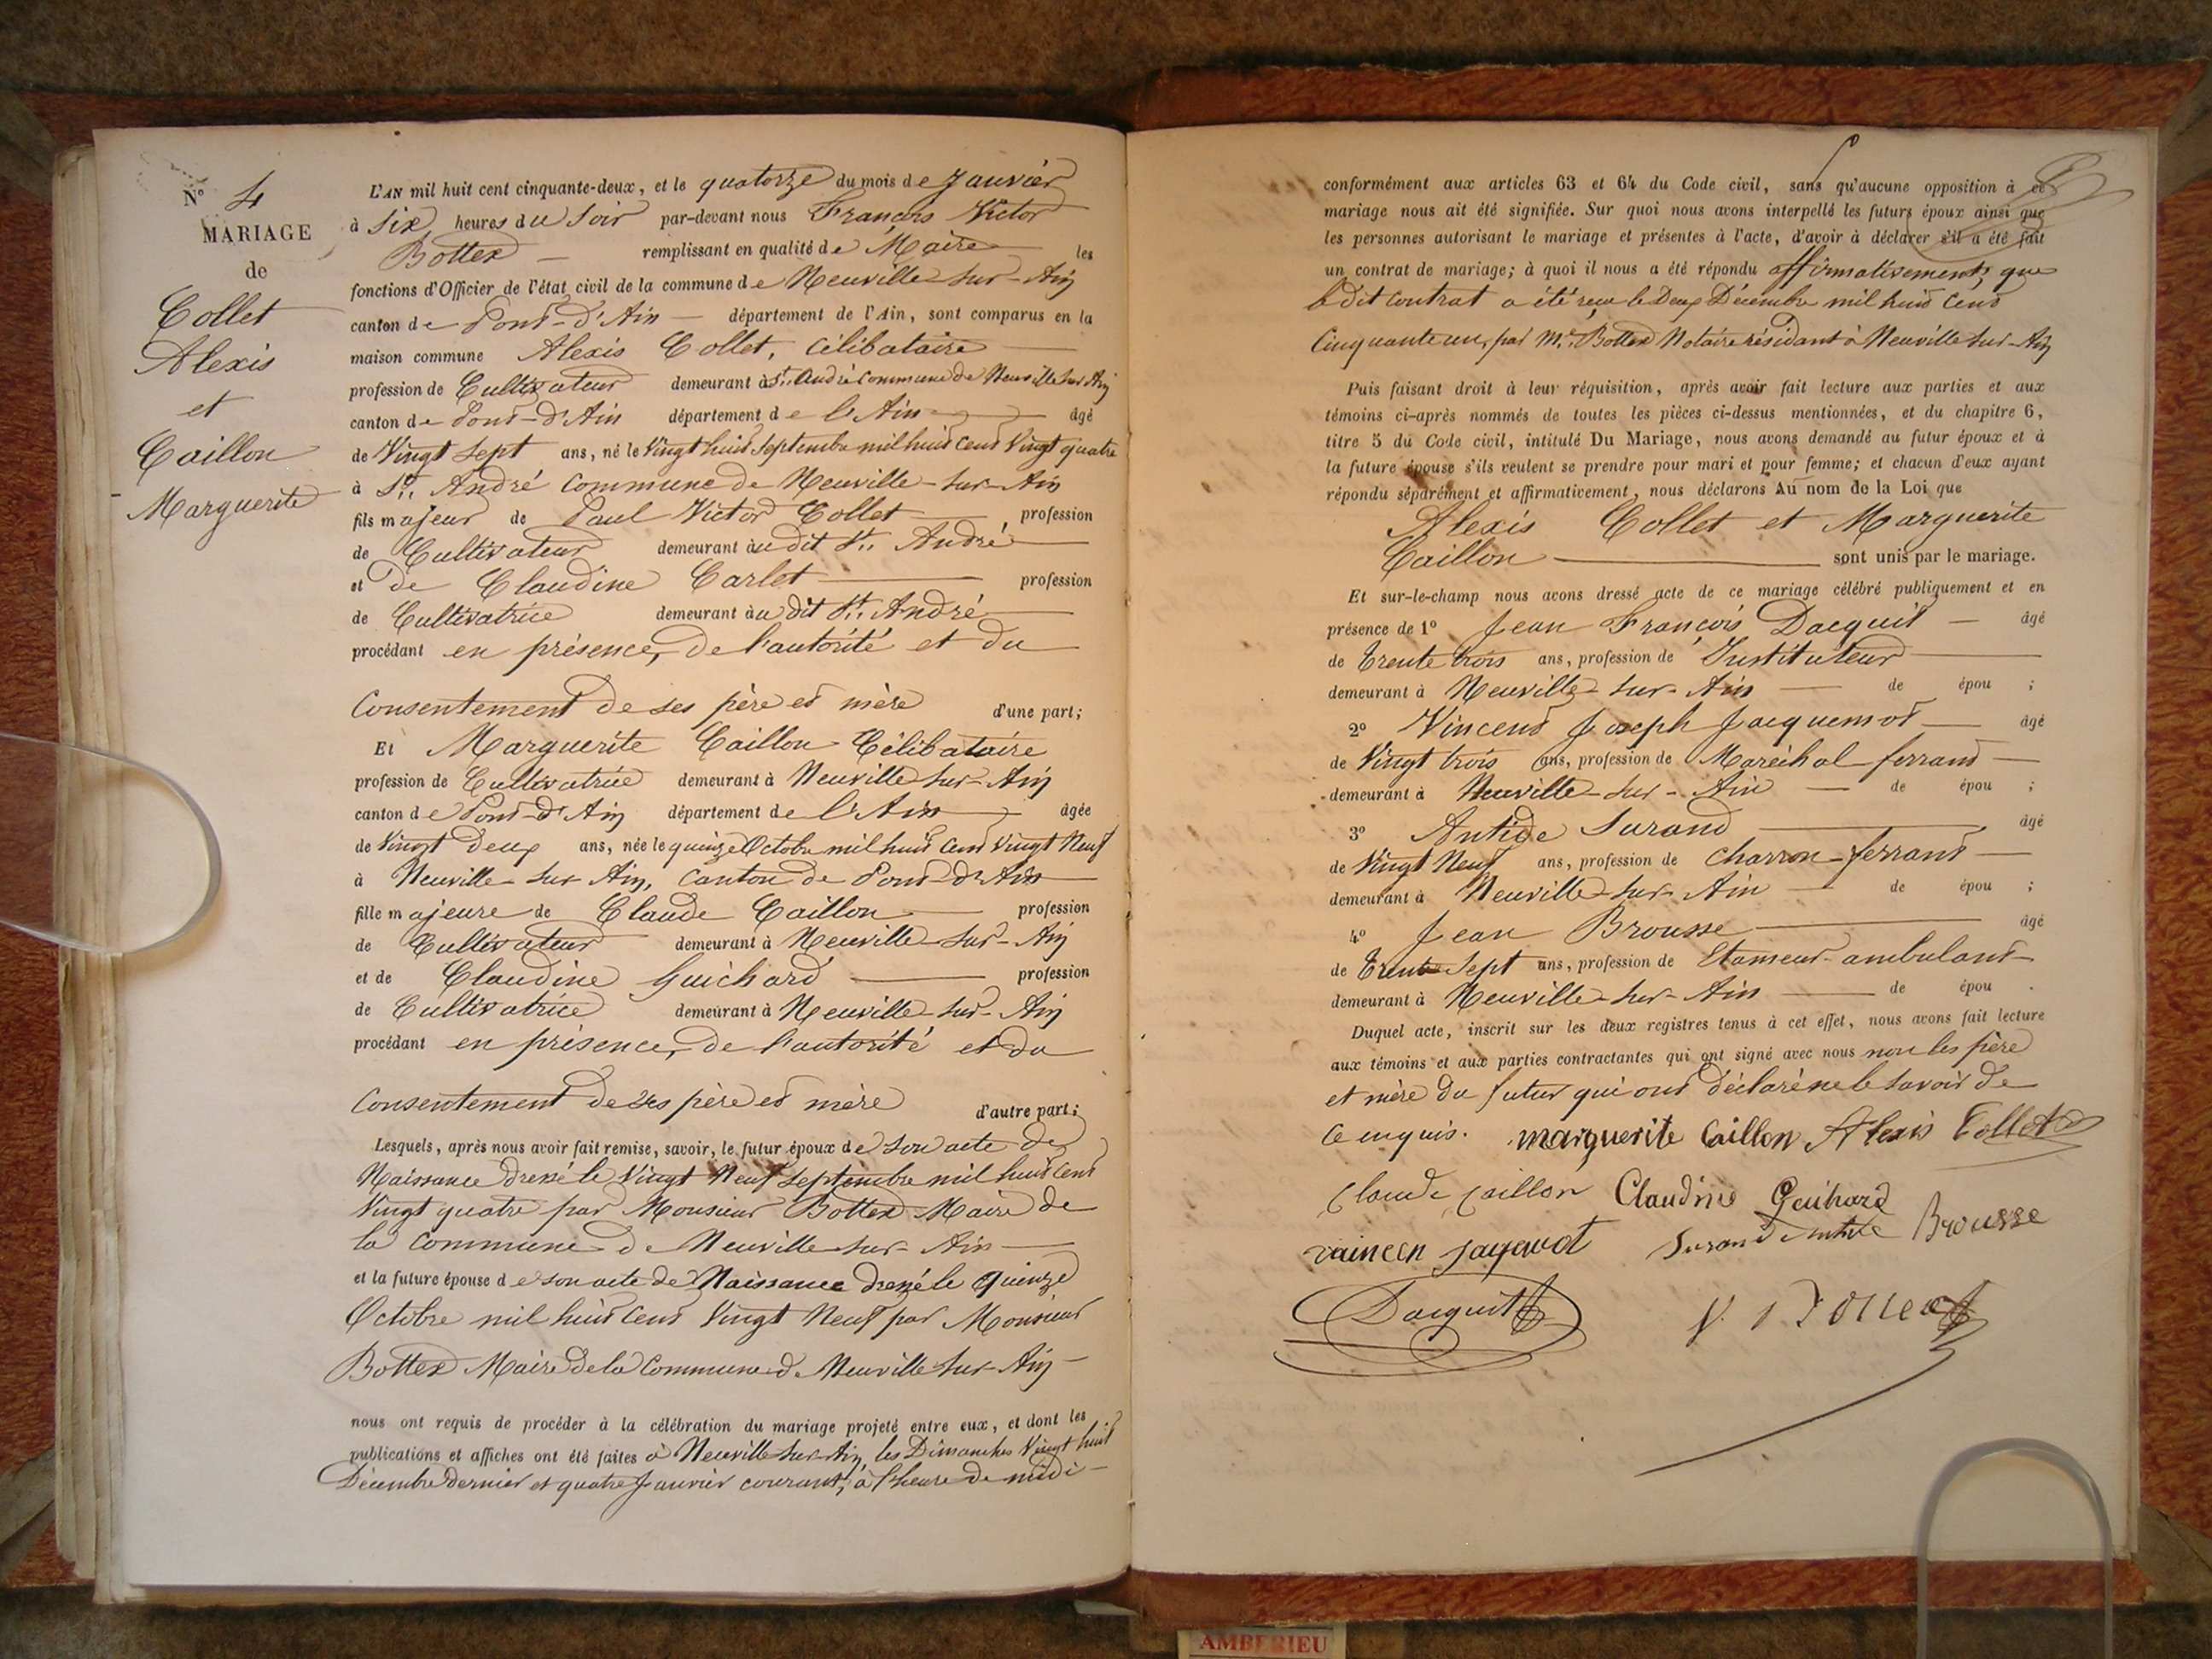 N° 4
MARIAGE
de
Collet
Alexis
et
Caillon
Marguerite
L'AN mil huit cent cinquante-deux, et le quatorze du mois de Janvier
à Six heures du Soir par-devant nous François Victor
Bottex — remplissant en qualité de Maire — les
fonctions d'Officier de l'état civil de la commune de Neuville-sur-Ain
canton de Pont-d'Ain — département de l'Ain, sont comparus en la
maison commune Alexis Collet, Célibataire —
profession de Cultivateur demeurant à St. André Commune de Neuville sur Ain
canton de Pont-d'Ain département de l'Ain — âgé
de Vingt Sept ans, né le Vingt huit Septembre mil huit Cent Vingt quatre
à St. André Commune de Neuville-sur-Ain
fils majeur de Paul Victor Collet — profession
de Cultivateur demeurant au dit St. André —
et de Claudine Carlet — profession
de Cultivatrice demeurant au dit St. André —
procédant en présence, de l'autorité et du
Consentement de ses père et mère d'une part;
Et Marguerite Caillon Célibataire
profession de Cultivatrice demeurant à Neuville-sur-Ain
canton de Pont-d'Ain département de l'Ain — âgée
de Vingt Deux ans, née le quinze Octobre mil huit Cent Vingt Neuf
à Neuville-sur Ain, Canton de Pont-d'Ain —
fille majeure de Claude Caillon — profession
de Cultivateur demeurant à Neuville-sur-Ain
et de Claudine Guichard — profession
de Cultivatrice demeurant à Neuville-sur-Ain
procédant en présence, de l'autorité et du
Consentement de ses père et mère d'autre part;
Lesquels, après nous avoir fait remise, savoir, le futur époux de son acte de
Naissance dressé le Vingt Neuf Septembre mil huit Cent
Vingt quatre par Monsieur Bottex Maire de
la Commune de Neuville-sur-Ain —
et la future épouse de son acte de Naissance dressé le Quinze
Octobre mil huit Cent Vingt Neuf par Monsieur
Bottex Maire de la Commune de Neuville sur Ain —
nous ont requis de procéder à la célébration du mariage projeté entre eux, et dont les
publications et affiches ont été faites à Neuville-sur-Ain, les Dimanches Vingt huit
Décembre dernier et quatre Janvier courant, à l'heure de midi —
conformément aux articles 63 et 64 du Code civil, sans qu'aucune opposition à ce
mariage nous ait été signifiée. Sur quoi nous avons interpellé les futurs époux ainsi que
les personnes autorisant le mariage et présentes à l'acte, d'avoir à déclarer s'il a été fait
un contrat de mariage; à quoi il nous a été répondu affirmativement, que
le dit Contrat a été reçu le Deux Décembre mil huit Cent
Cinquante un, par Me. Bottex Notaire résidant à Neuville sur-Ain
Puis faisant droit à leur réquisition, après avoir fait lecture aux parties et aux
témoins ci-après nommés de toutes les pièces ci-dessus mentionnées, et du chapitre 6,
titre 5 du Code civil, intitulé Du Mariage, nous avons demandé au futur époux et à
la future épouse s'ils veulent se prendre pour mari et pour femme; et chacun d'eux ayant
répondu séparément et affirmativement, nous déclarons Au nom de la Loi que
Alexis Collet et Marguerite
Caillon — sont unis par le mariage.
Et sur-le-champ nous avons dressé acte de ce mariage célébré publiquement et en
présence de 1° Jean François Dacquit — âgé
de Trente trois ans, profession de Instituteur —
demeurant à Neuville-sur-Ain — de épou ;
2° Vincent Joseph Jacquemot — âgé
de Vingt trois ans, profession de Maréchal ferrant —
demeurant à Neuville-sur-Ain — de épou ;
3° Antide Surand — âgé
de Vingt Neuf ans, profession de Charron-ferrant —
demeurant à Neuville-sur-Ain — de épou ;
4° Jean Brousse — âgé
de Trente Sept ans, profession de Etameur-ambulant —
demeurant à Neuville-sur-Ain — de épou .
Duquel acte, inscrit sur les deux registres tenus à cet effet, nous avons fait lecture
aux témoins et aux parties contractantes qui ont signé avec nous non les père
et mère du futur qui ont déclaré ne le savoir de
ce enquis. marguerite Caillon Alexis Collet
Claude caillon Claudine Guihard
Surand Antide Brousse
Dacquit
AMBERIEU